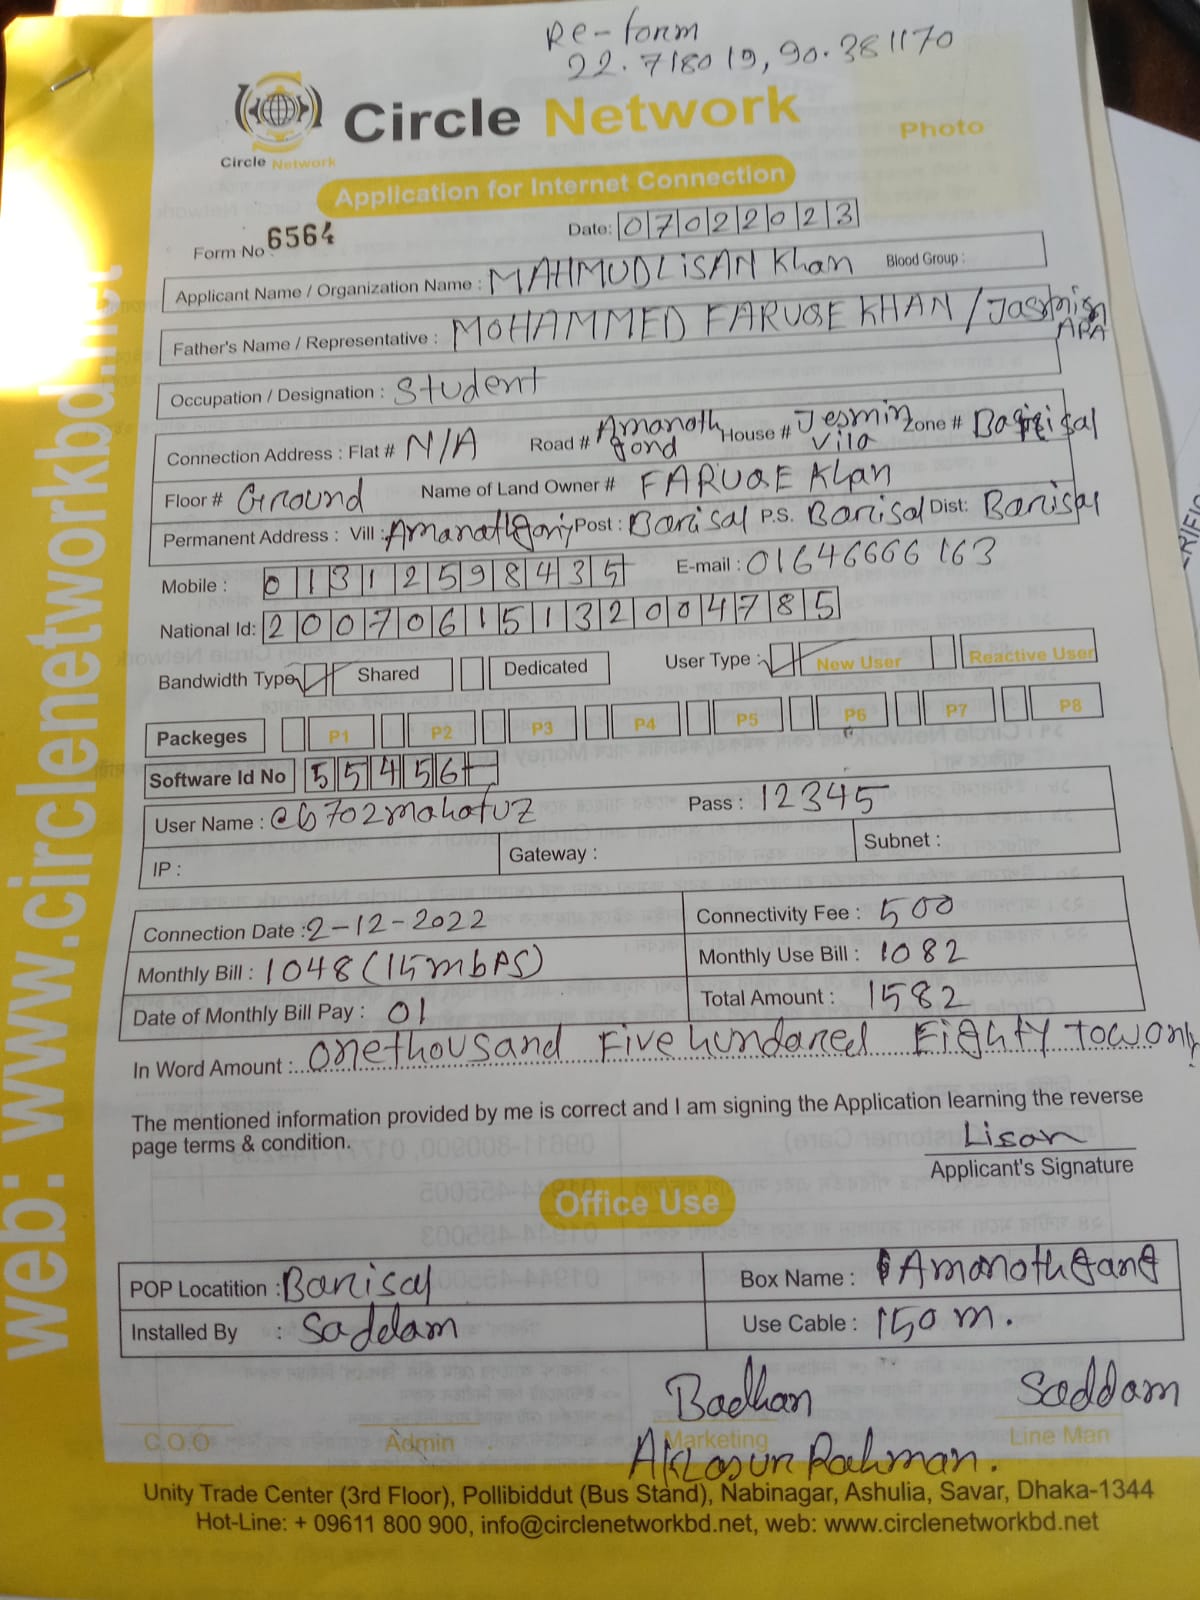 Re-form
22.718019, 90.381170
Circle Network
Circle Network
Photo
Application for Internet Connection
Form No 6564
Date: 07022023
Applicant Name / Organization Name : MAHMUDLiSAN Khan Blood Group :
Father's Name / Representative : MOHAMMED FARUQE KHAN / Jasmin ARA
Occupation / Designation : Student
Connection Address : Flat # N/A Road # Amanath gond House # Jesmin Vila Zone # Barisal
Floor # Ground Name of Land Owner # FARUQE Khan
Permanent Address : Vill : Amanathganj Post : Barisal P.S. Barisal Dist: Barisal
Mobile : 01312598435 E-mail : 01646666163
National Id: 20070615132004785
Bandwidth Type Shared Dedicated User Type : New User Reactive User
Packeges P1 P2 P3 P4 P5 P6 P7 P8
Software Id No 55456
User Name : Pass : 12345
IP : Gateway : Subnet :
Connection Date : 2-12-2022 Connectivity Fee : 500
Monthly Bill : 1048 (15mbps) Monthly Use Bill : 1082
Date of Monthly Bill Pay : 01 Total Amount : 1582
In Word Amount : onethousand Five hundared Eighty tow only
The mentioned information provided by me is correct and I am signing the Application learning the reverse
page terms & condition.
Lisan
Applicant's Signature
Office Use
POP Locatition : Barisal Box Name : Amanothgang
Installed By : Saddam Use Cable : 150 m.
Badhan Saddam
C.O.O Admin Marketing Line Man
Rahman.
Unity Trade Center (3rd Floor), Pollibiddut (Bus Stand), Nabinagar, Ashulia, Savar, Dhaka-1344
Hot-Line: + 09611 800 900, info@circlenetworkbd.net, web: www.circlenetworkbd.net
web: www.circlenetworkbd.net